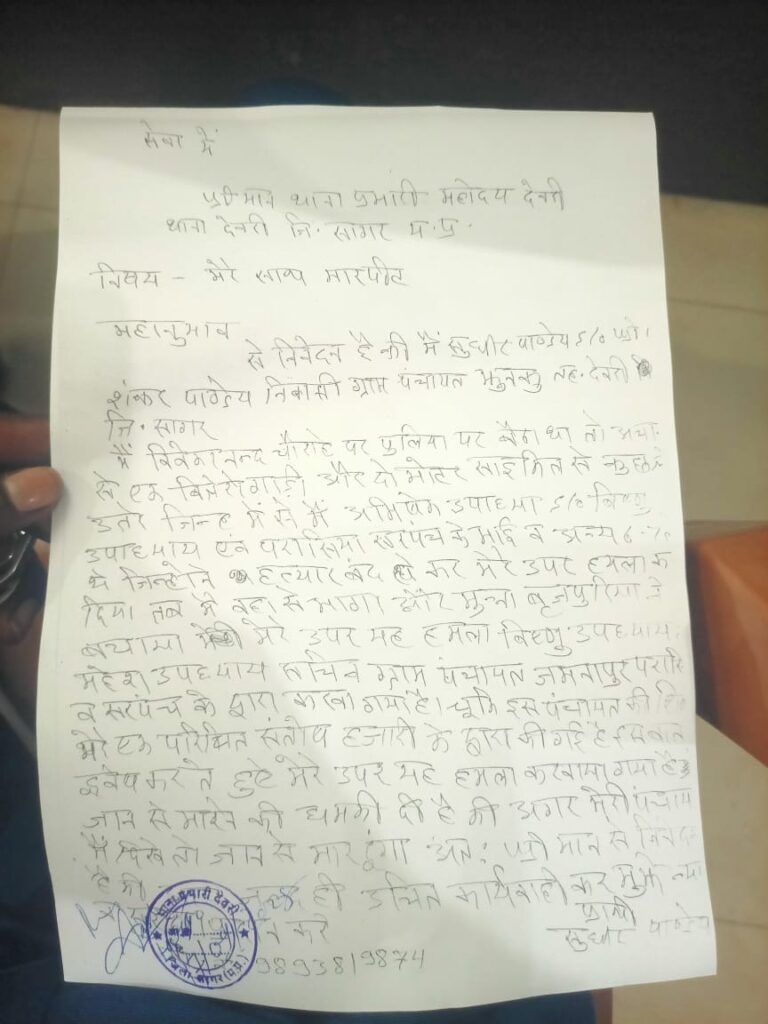 सेवा में
श्रीमान थाना प्रभारी महोदय देवरी
थाना देवरी जि. सागर म.प्र.
विषय - मेरे साथ मारपीट
महानुभाव
से निवेदन है की मैं सुधीर पाण्डेय S/o श्री
शंकर पाण्डेय निवासी ग्राम पंचायत झुनकु तह. देवरी
जि. सागर
मैं विवेकानन्द चौराहे पर पुलिया पर बैठा था तो अचा
से एक गाड़ी और दो मोटर साइकिल से कुछ
उतरे जिन्ह में से में अभिषेक उपाध्याय S/o विष्णु
उपाध्याय एवं परासिया सरपंच के भाई व अन्य
थे जिन्होने हत्यार बंद हो कर मेरे उपर हमला क
दिया तब मैं वहा से भागा और मुन्ना बृजपुरिया ने
बचाया मेरे उपर यह हमला विष्णु उपध्याय
महेश उपध्याय सचिव ग्राम पंचायत जमनापुर परासि
व सरपंच के द्वारा करवा गया है। चूकि इस पंचायत की
मेरे एक परिचित संतोष हजारी के द्वारा की गई है इस
द्वेष करते हुऐ मेरे उपर यह हमला करवाया गया है
जान से मारने की धमकी दी है की अगर मेरी पंचाय
में दिखे तो जान से मार दूंगा अत: श्री मान से निवेदन
है की ही उचित कार्यवाही कर मुझे न्या
करे
प्रार्थी
सुधीर पाण्डेय
9893819874
थाना प्रभारी देवरी
जिला सागर (म.प्र.)